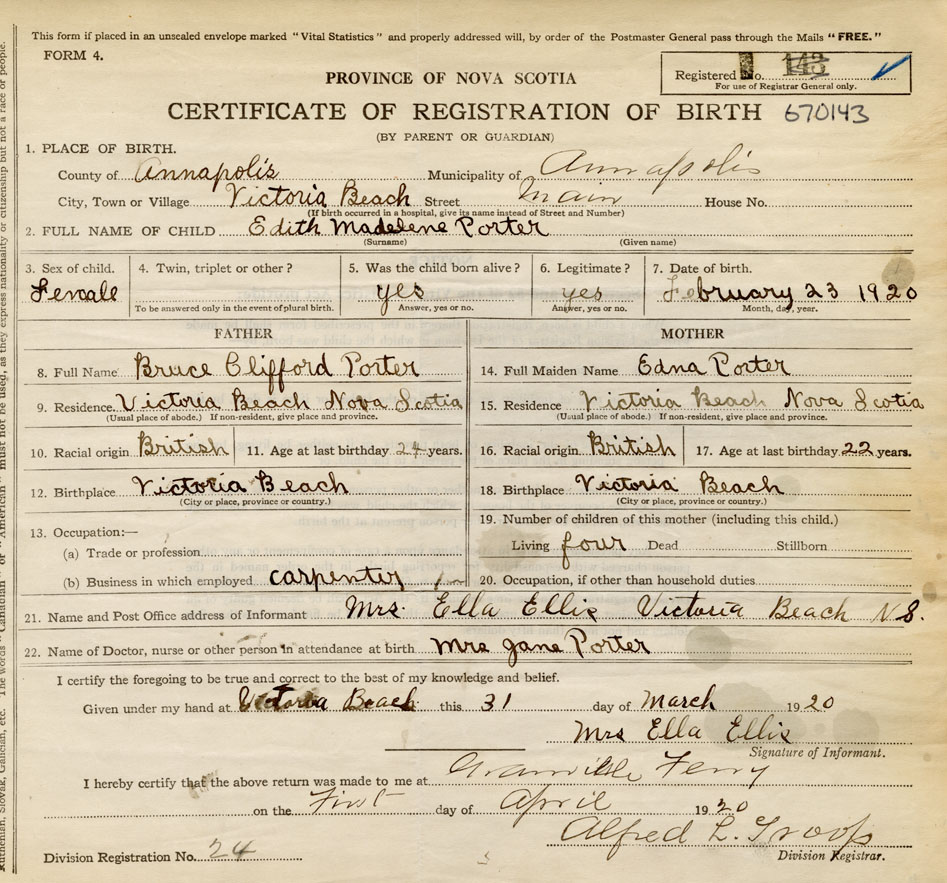 This form if placed in an unsealed envelope marked "Vital Statistics" and properly addressed will, by order of the Postmaster General pass through the Mails "FREE."
FORM 4.
Registered No. 143
For use of Registrar General only.
PROVINCE OF NOVA SCOTIA
CERTIFICATE OF REGISTRATION OF BIRTH 670143
(BY PARENT OR GUARDIAN)
1. PLACE OF BIRTH.
County of Annapolis Municipality of Annapolis
City, Town or Village Victoria Beach Street Main House No.
(If birth occurred in a hospital, give its name instead of Street and Number)
2. FULL NAME OF CHILD Edith Madelene Porter
(Surname) (Given name)
3. Sex of child. 4. Twin, triplet or other? 5. Was the child born alive? 6. Legitimate? 7. Date of birth.
Female yes yes February 23 1920
To be answered only in the event of plural birth. Answer, yes or no. Answer, yes or no. Month, day, year.
FATHER MOTHER
8. Full Name Bruce Clifford Porter 14. Full Maiden Name Edna Porter
9. Residence Victoria Beach Nova Scotia 15. Residence Victoria Beach Nova Scotia
(Usual place of abode.) If non-resident, give place and province. (Usual place of abode.) If non-resident, give place and province.
10. Racial origin British 11. Age at last birthday 24 years. 16. Racial origin British 17. Age at last birthday 22 years.
12. Birthplace Victoria Beach 18. Birthplace Victoria Beach
(City or place, province or country.) (City or place, province or country.)
13. Occupation:— 19. Number of children of this mother (including this child.)
(a) Trade or profession Living four Dead Stillborn
(b) Business in which employed carpenter 20. Occupation, if other than household duties
21. Name and Post Office address of Informant Mrs. Ella Ellis Victoria Beach N.S.
22. Name of Doctor, nurse or other person in attendance at birth Mrs Jane Porter
I certify the foregoing to be true and correct to the best of my knowledge and belief.
Given under my hand at Victoria Beach this 31 day of March 1920
Mrs Ella Ellis
Signature of Informant.
I hereby certify that the above return was made to me at Granville Ferry
on the First day of April 1920
Alfred L. Troop
Division Registrar.
Division Registration No. 24
Ruthenian, Slovak, Galician, etc. The words "Canadian" or "American" must not be used, as they express nationality or citizenship but not a race or people.